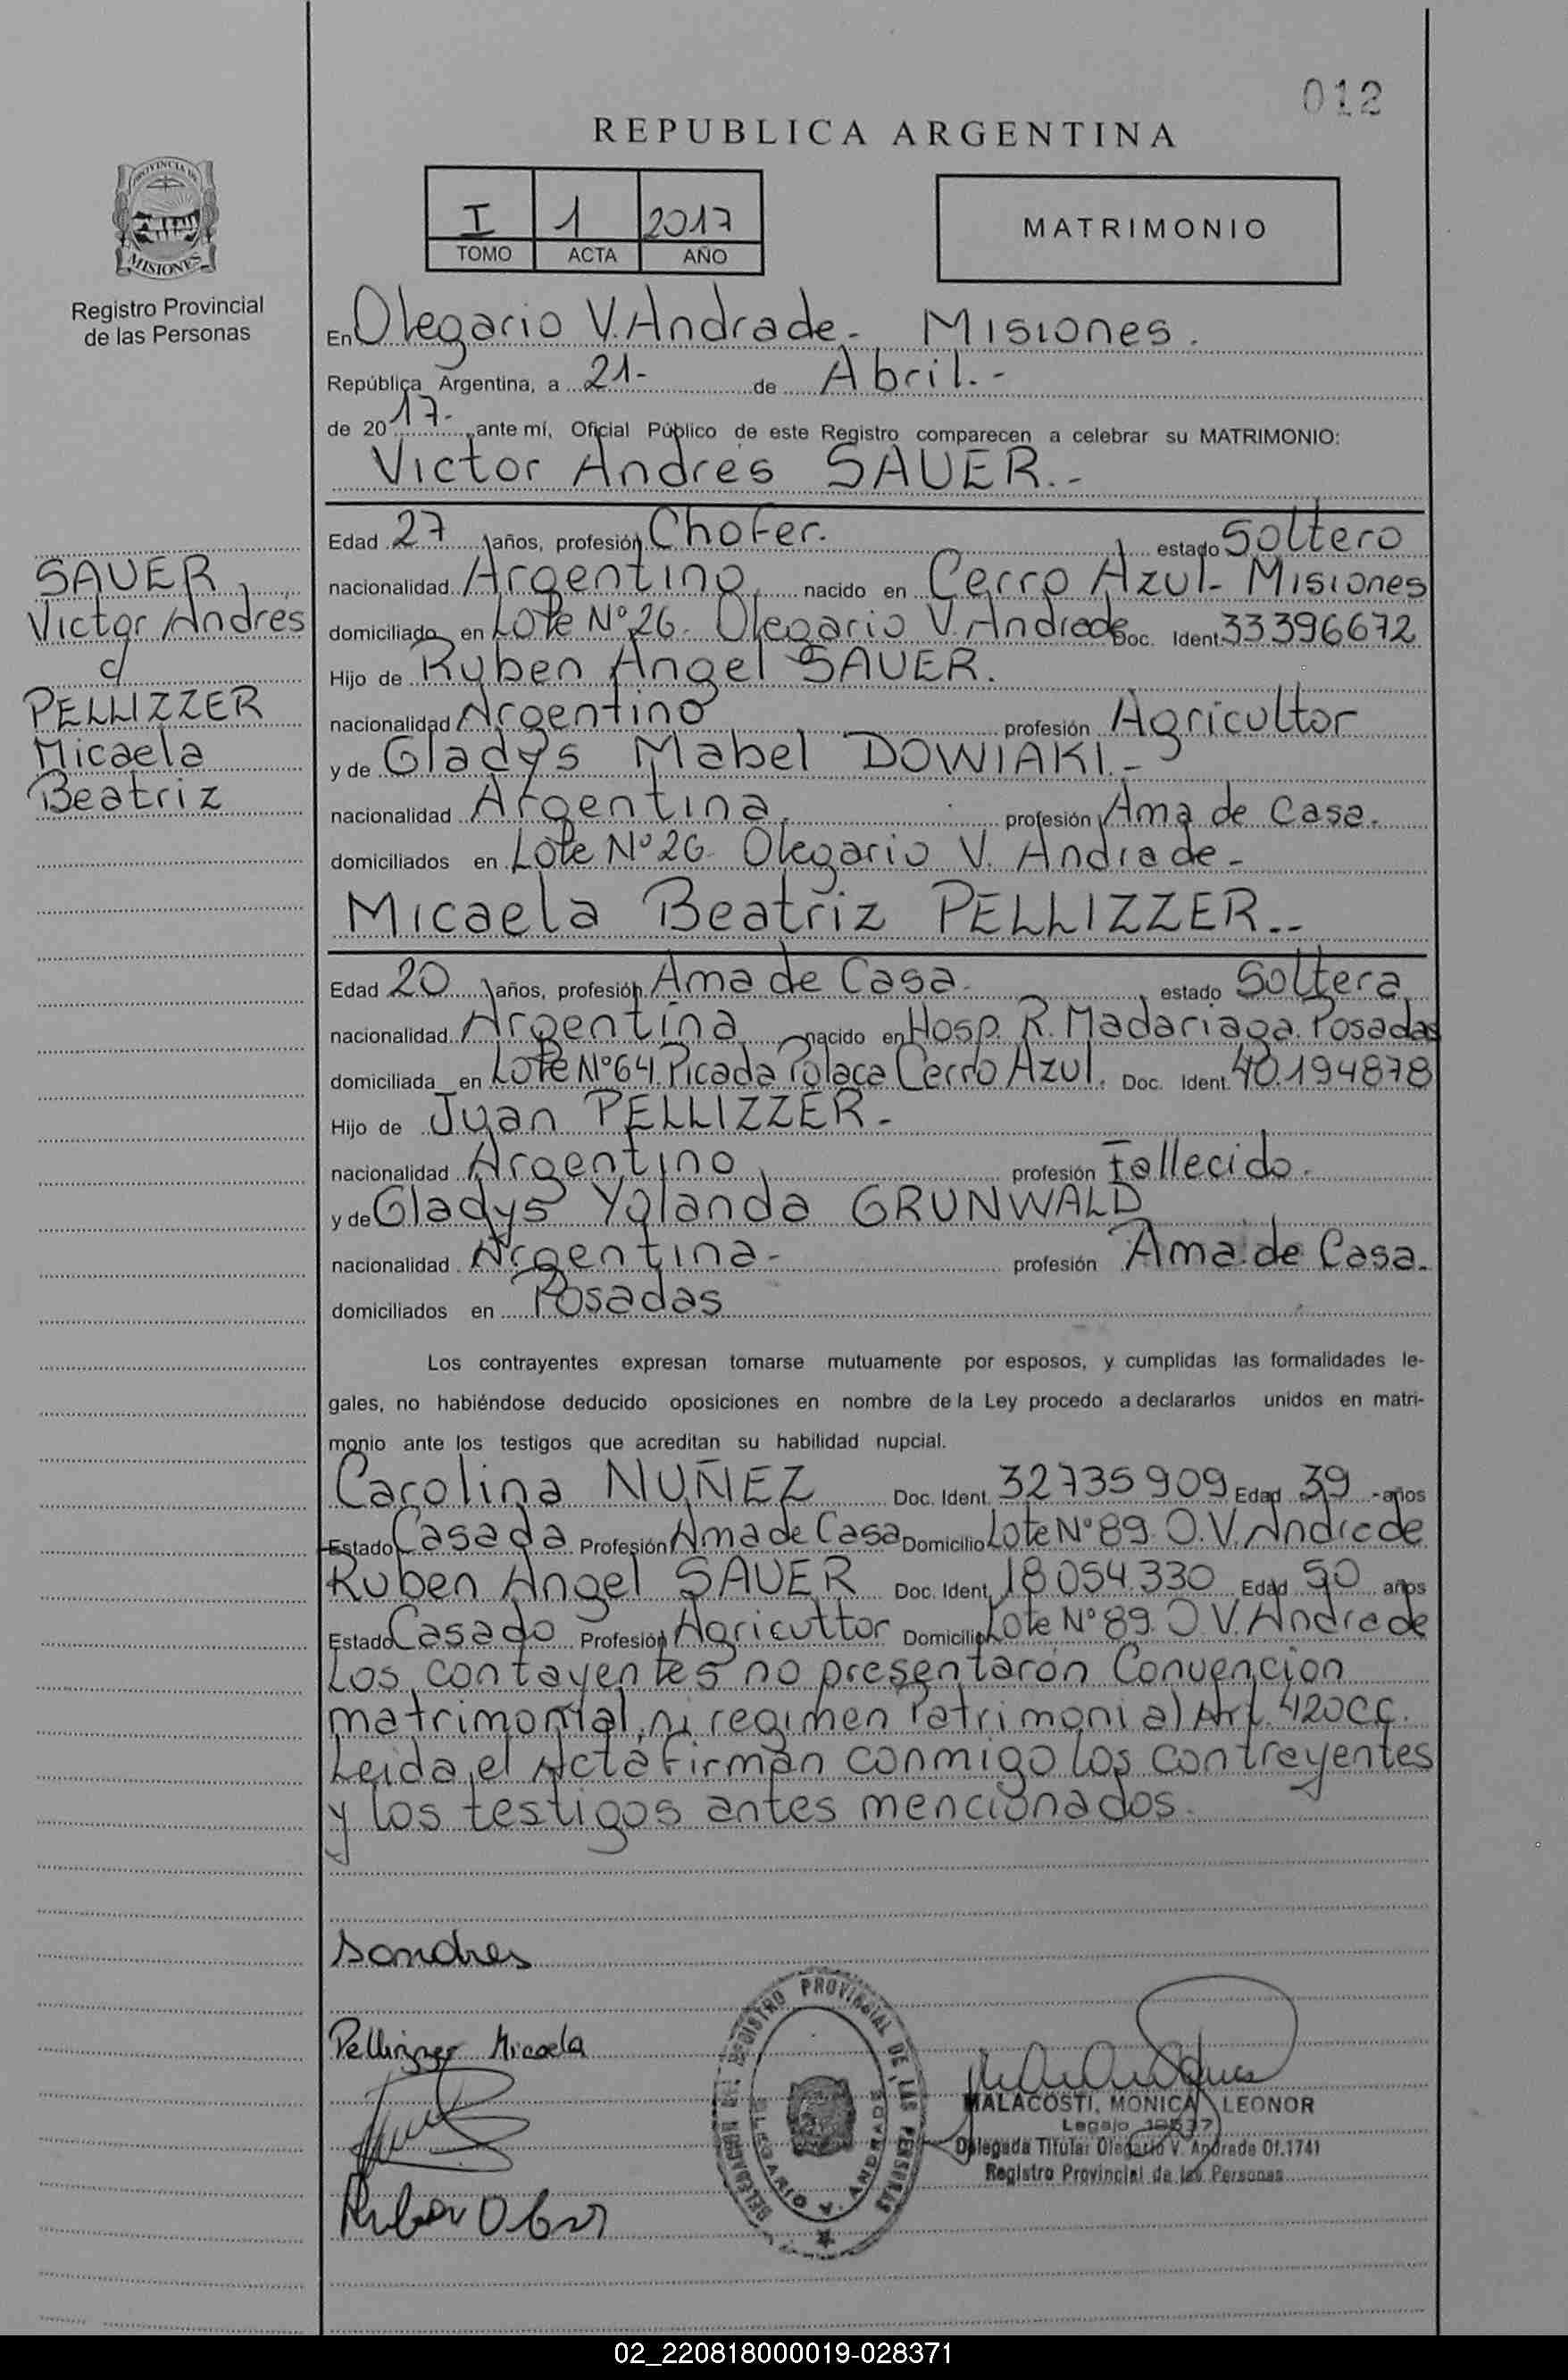 012
REPUBLICA ARGENTINA
I 1 2017
TOMO ACTA AÑO
MATRIMONIO
PROVINCIA DE
MISIONES
Registro Provincial
de las Personas
En Olegario V. Andrade - Misiones.
República Argentina, a 21- de Abril.-
de 2017- ante mí, Oficial Público de este Registro comparecen a celebrar su MATRIMONIO:
Victor Andres SAUER.-
Edad 27 años, profesión Chofer. estado Soltero
nacionalidad Argentino nacido en Cerro Azul - Misiones
domiciliado en Lote Nº 26. Olegario V. Andrade Doc. Ident. 33396672
Hijo de Ruben Angel SAUER.
nacionalidad Argentino profesión Agricultor
y de Gladys Mabel DOWIAKI.-
nacionalidad Argentina profesión Ama de Casa.
domiciliados en Lote Nº 26. Olegario V. Andrade-
SAUER
Victor Andres
c/
PELLIZZER
Micaela
Beatriz
Micaela Beatriz PELLIZZER.--
Edad 20 años, profesión Ama de Casa. estado Soltera
nacionalidad Argentina nacido en Hosp. R. Madariaga. Posadas
domiciliada en Lote Nº 64 Picada Polaca Cerro Azul. Doc. Ident. 40.194878
Hijo de Juan PELLIZZER-
nacionalidad Argentino profesión Fallecido.
y de Gladys Yolanda GRUNWALD
nacionalidad Argentina- profesión Ama de Casa.
domiciliados en Posadas
Los contrayentes expresan tomarse mutuamente por esposos, y cumplidas las formalidades le-
gales, no habiéndose deducido oposiciones en nombre de la Ley procedo a declararlos unidos en matri-
monio ante los testigos que acreditan su habilidad nupcial.
Carolina NUÑEZ Doc. Ident. 32735909 Edad 39 años
Estado Casada Profesión Ama de Casa Domicilio Lote Nº 89. O.V. Andrade
Ruben Angel SAUER Doc. Ident. 18.054.330 Edad 50 años
Estado Casado Profesión Agricultor Domicilio Lote Nº 89. O.V. Andrade
Los contayentes no presentarón Convencion
matrimonial, ni regimen Patrimonial Art. 420CC.
Leida el Acta firman conmigo los contrayentes
y los testigos antes mencionados.
Pellizzer Micaela
REGISTRO PROVINCIAL DE LAS PERSONAS
OLEGARIO V. ANDRADE
MALACOSTI, MONICA LEONOR
Legajo
Delegada Titular Olegario V. Andrade Of. 1741
Registro Provincial de las Personas
02_220818000019-028371